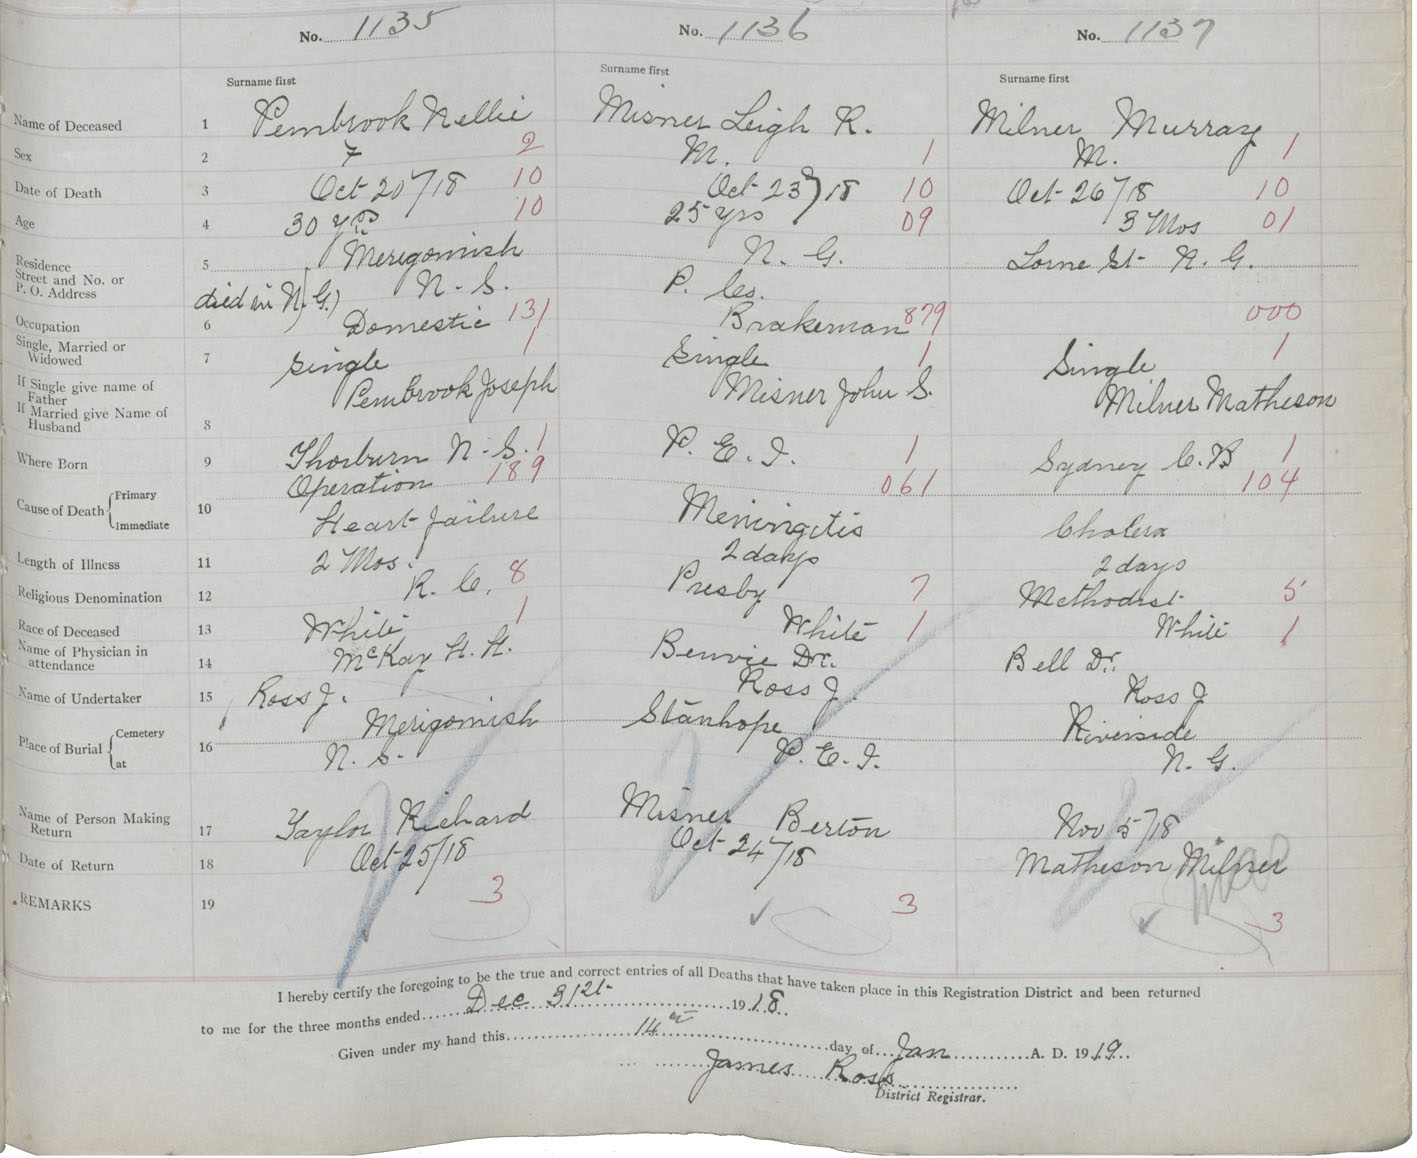 No. 1135 No. 1136 No. 1137
Surname first Surname first Surname first
Name of Deceased 1 Pembrook Nellie Misner Leigh R. Milner Murray
Sex 2 F 2 M. 1 M. 1
Date of Death 3 Oct 20/18 10 Oct 23/18 10 Oct 26/18 10
Age 4 30 yrs 10 25 yrs 09 3 Mos 01
Residence
Street and No. or
P. O. Address
5 Merigomish N. G. Lorne St. N. G.
died in N. G.) N. S. P. Co.
Occupation 6 Domestic 131 Brakeman 879 000
Single, Married or
Widowed
7 Single 1 Single 1 Single 1
If Single give name of
Father
If Married give Name of
Husband
8 Pembrook Joseph Misner John S. Milner Matheson
Where Born 9 Thorburn N. S. 1 P. E. I. 1 Sydney C. B 1
Cause of Death { Primary Operation 189 061 104
Immediate 10 Heart failure Meningitis Cholera
Length of Illness 11 2 Mos. 2 days 2 days
Religious Denomination 12 R. C. 8 Presby 7 Methodist 5
Race of Deceased 13 White 1 White 1 White 1
Name of Physician in
attendance
14 McKay H. H. Benvie Dr. Bell Dr.
Name of Undertaker 15 Ross J. Ross J. Ross J
Place of Burial { Cemetery Merigomish Stanhope Riverside
at 16 N. S. P. E. I. N. G.
Name of Person Making
Return
17 Taylor Richard Misner Berton Nov 5/18
Date of Return 18 Oct 25/18 Oct 24/18 Matheson Milner
REMARKS 19 3 3 3
I hereby certify the foregoing to be the true and correct entries of all Deaths that have taken place in this Registration District and been returned
to me for the three months ended Dec 31st 1918
Given under my hand this 14th day of Jan A. D. 1919
James Ross
District Registrar.